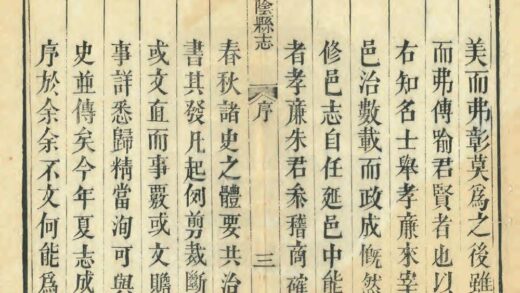 美而弗彰莫爲之後雖
而弗傳喻君賢者也以
右知名士舉孝廉來宰
邑治數載而政成慨然
修邑志自任延邑中能
者孝廉朱君叅稽商確
陰縣志
序
三
春秋諸史之體要共治
書其發凡起例剪裁斷
或文直而事覈或文贍
事詳悉歸精當洵可與
史並傳矣今年夏志成
序於余余不文何能爲